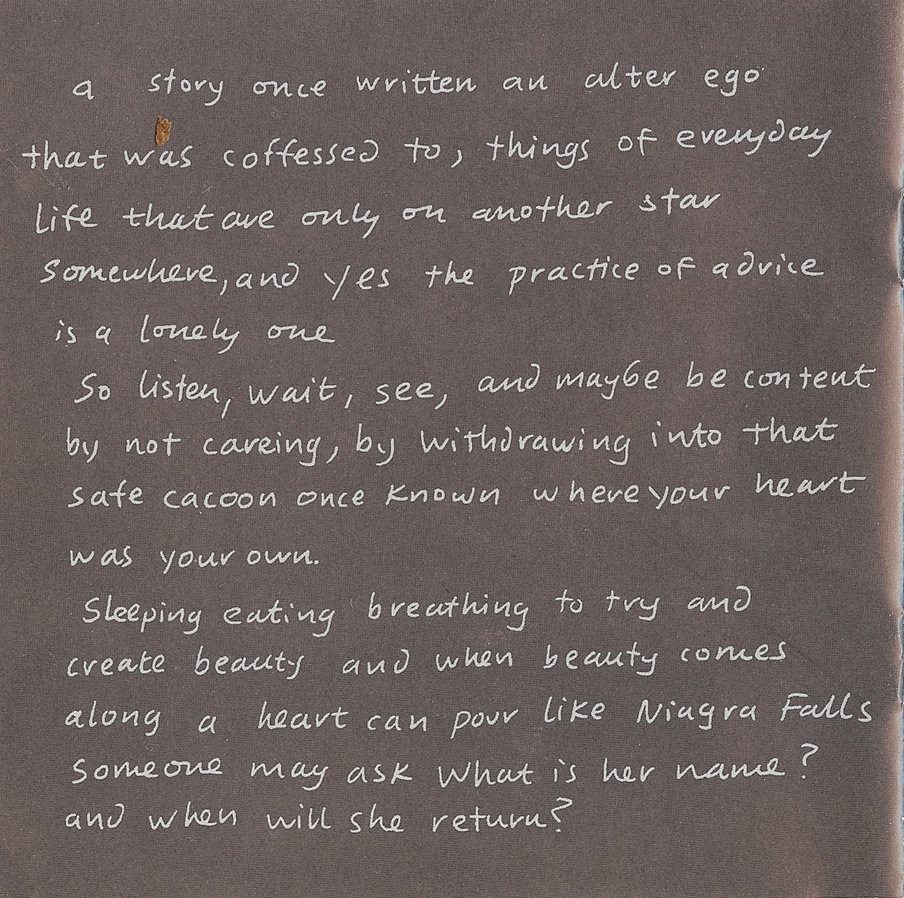 a story once written an alter ego
that was coffessed to, things of everyday
life that are only on another star
somewhere, and yes the practice of advice
is a lonely one
So listen, wait, see, and maybe be content
by not careing, by withdrawing into that
safe cacoon once known where your heart
was your own.
Sleeping eating breathing to try and
create beauty and when beauty comes
along a heart can pour like Niagra Falls
someone may ask what is her name?
and when will she return?